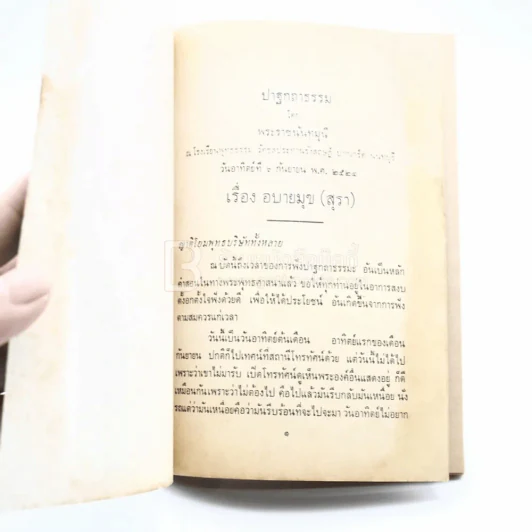 ปาฐกถาธรรม
โดย
พระราชนันทมุนี
ณ โรงเรียนพุทธธรรม วัดชลประทานรังสฤษฎ์ ปากเกร็ด นนทบุรี
วันอาทิตย์ที่ ๖ กันยายน พ.ศ. ๒๕๒๔
เรื่อง อบายมุข (สุรา)
ญาติโยมพุทธบริษัททั้งหลาย
ณ บัดนี้ถึงเวลาของการฟังปาฐกถาธรรมะ อันเป็นหลัก
คำสอนในทางพระพุทธศาสนาแล้ว ขอให้ทุกท่านอยู่ในอาการสงบ
ตั้งอกตั้งใจฟังด้วยดี เพื่อให้ได้ประโยชน์ อันเกิดขึ้นจากการฟัง
ตามสมควรแก่เวลา
วันนี้เป็นวันอาทิตย์ต้นเดือน อาทิตย์แรกของเดือน
กันยายน ปกติก็ไปเทศน์ที่สถานีโทรทัศน์ด้วย แต่วันนี้ไม่ได้ไป
เพราะว่าเขาไม่มารับ เปิดโทรทัศน์ดูเห็นพระองค์อื่นแสดงอยู่ ก็ดี
เหมือนกันเพราะว่าไม่ต้องไป คือไปแล้วมันรีบกลับมันเหนื่อย นั่ง
รถแต่ว่ามันเหนื่อยคือว่ามันรีบร้อนที่จะไปจะมา วันอาทิตย์ไม่อยาก
๑